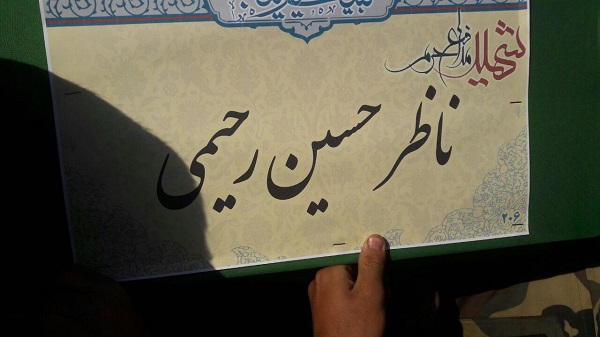 شهید
مدافع حرم
ناظر حسین رحیمی
۲۰۶